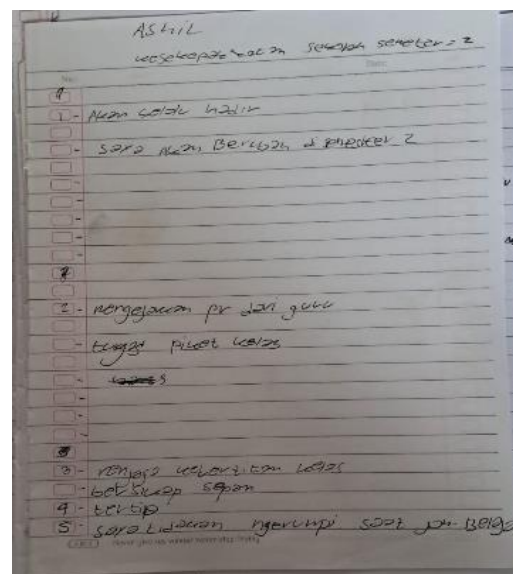 ASHIL
kesekepakatan sekolah semeter = 2
No.
Date:
1 - Akan selalu hadir
- saya Akan Berubah di semester 2
2 - mengejakan pr dari guru
- tugas piket kelas
3 - menjaga kebertitan kelas
- bersikap sopan
4 - tertip
5 - saya tidakan ngerumpi saat jam Belaja